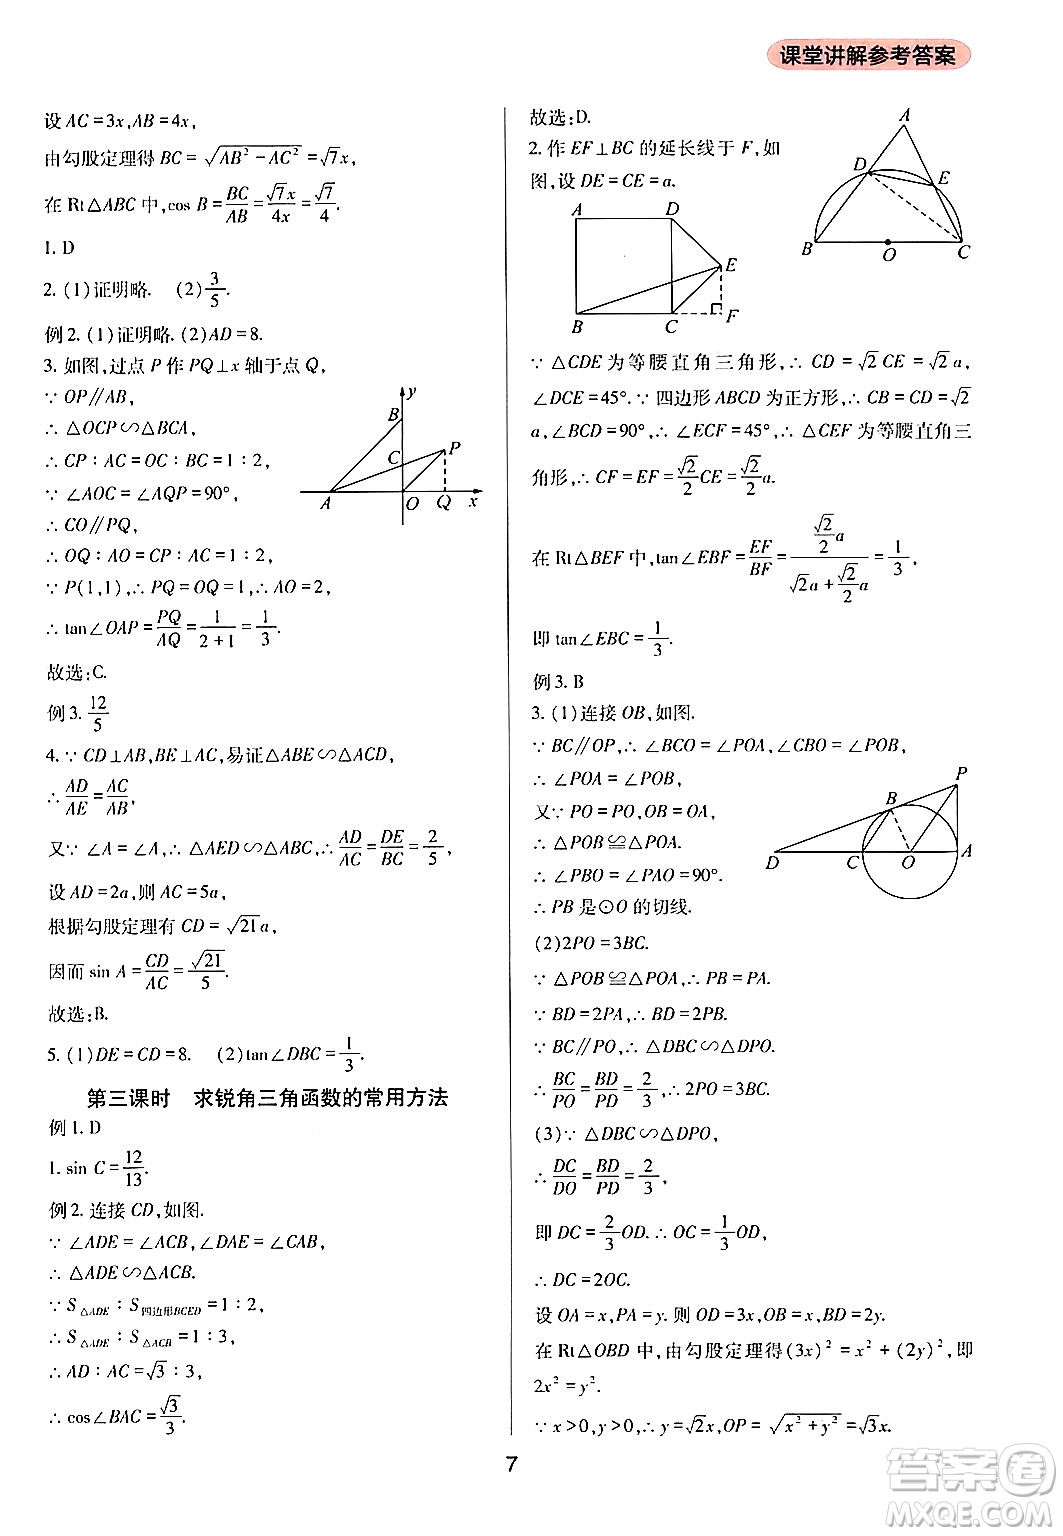 课堂讲解参考答案
设 AC=3x,AB=4x,
由勾股定理得 BC=√(AB²-AC²)=√7x,
在 Rt△ABC 中,cos B=BC/AB=√7x/4x=√7/4.
1. D
2. (1)证明略. (2)3/5.
例2. (1)证明略. (2)AD=8.
3. 如图,过点 P 作 PQ⊥x 轴于点 Q,
∵ OP∥AB,
∴ △OCP∽△BCA,
∴ CP∶AC=OC∶BC=1∶2,
∵ ∠AOC=∠AQP=90°,
∴ CO∥PQ,
∴ OQ∶AO=CP∶AC=1∶2,
∵ P(1,1),∴ PQ=OQ=1,∴ AO=2,
∴ tan∠OAP=PQ/AQ=1/(2+1)=1/3.
y
B
C
P
A
O
Q
x
故选:C.
例3. 12/5
4. ∵ CD⊥AB,BE⊥AC,易证△ABE∽△ACD,
∴ AD/AE=AC/AB,
又∵ ∠A=∠A,∴ △AED∽△ABC,∴ AD/AC=DE/BC=2/5,
设 AD=2a,则 AC=5a,
根据勾股定理有 CD=√21a,
因而 sin A=CD/AC=√21/5.
故选:B.
5. (1)DE=CD=8. (2)tan∠DBC=1/3.
第三课时 求锐角三角函数的常用方法
例1. D
1. sin C=12/13.
例2. 连接 CD,如图.
∵ ∠ADE=∠ACB,∠DAE=∠CAB,
∴ △ADE∽△ACB.
∵ S△ADE∶S四边形BCED=1∶2,
∴ S△ADE∶S△ACB=1∶3,
∴ AD∶AC=√3∶3,
∴ cos∠BAC=√3/3.
故选:D.
A
D
E
B
O
C
2. 作 EF⊥BC 的延长线于 F,如
图,设 DE=CE=a.
A
D
E
B
C
F
∵ △CDE 为等腰直角三角形,∴ CD=√2CE=√2a,
∠DCE=45°.∵ 四边形 ABCD 为正方形,∴ CB=CD=√2
a,∠BCD=90°,∴ ∠ECF=45°,∴ △CEF 为等腰直角三
角形,∴ CF=EF=√2/2CE=√2/2a.
在 Rt△BEF 中,tan∠EBF=EF/BF=(√2/2a)/(√2a+√2/2a)=1/3,
即 tan∠EBC=1/3.
例3. B
3. (1)连接 OB,如图.
∵ BC∥OP,∴ ∠BCO=∠POA,∠CBO=∠POB,
∴ ∠POA=∠POB,
又∵ PO=PO,OB=OA,
∴ △POB≌△POA.
∴ ∠PBO=∠PAO=90°.
∴ PB 是⊙O 的切线.
P
B
D
C
O
A
(2)2PO=3BC.
∵ △POB≌△POA,∴ PB=PA.
∵ BD=2PA,∴ BD=2PB.
∵ BC∥PO,∴ △DBC∽△DPO.
∴ BC/PO=BD/PD=2/3,∴ 2PO=3BC.
(3)∵ △DBC∽△DPO,
∴ DC/DO=BD/PD=2/3,
即 DC=2/3OD.∴ OC=1/3OD,
∴ DC=2OC.
设 OA=x,PA=y.则 OD=3x,OB=x,BD=2y.
在 Rt△OBD 中,由勾股定理得(3x)²=x²+(2y)²,即
2x²=y².
∵ x>0,y>0,∴ y=√2x,OP=√(x²+y²)=√3x.
7
答案圈
MXQE.COM